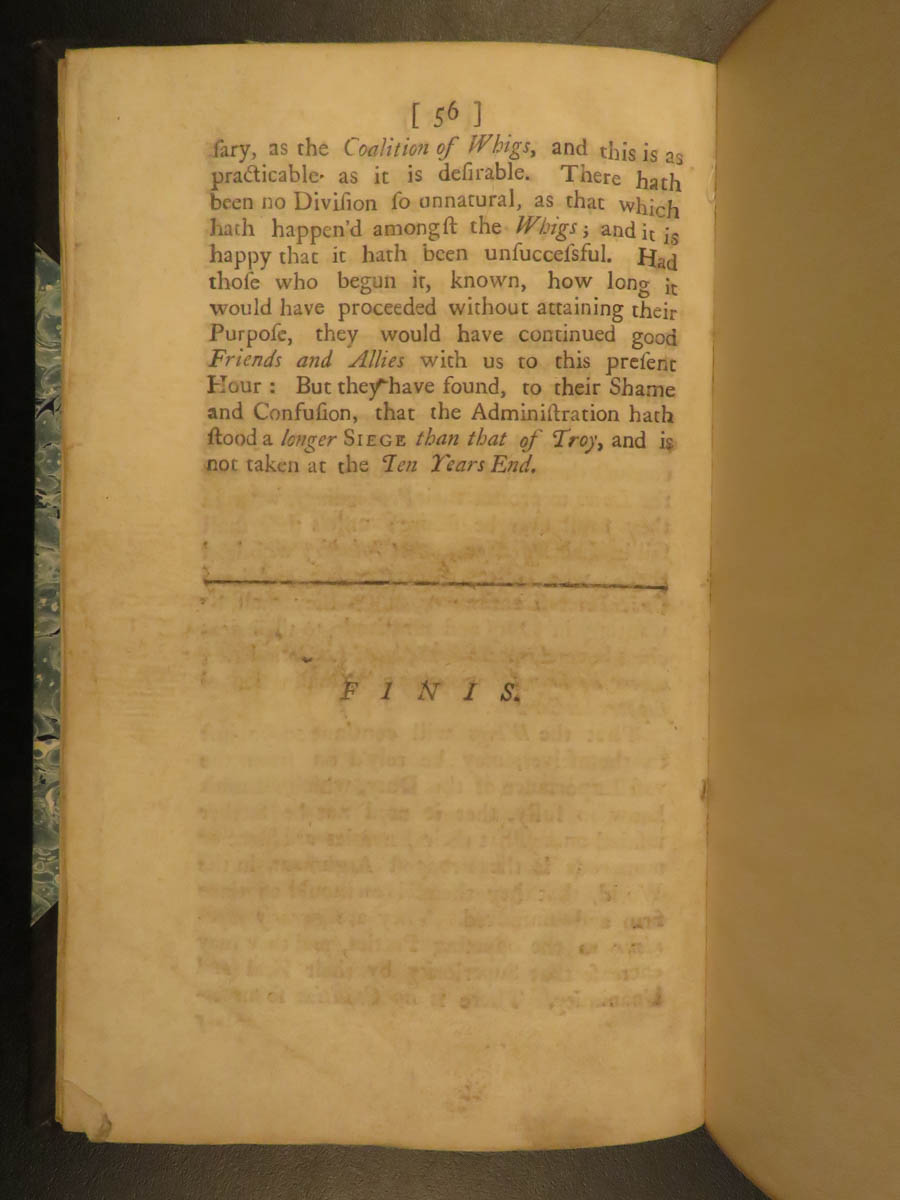 [ 56 ]
ſary, as the Coalition of Whigs, and this is as
practicable· as it is deſirable. There hath
been no Diviſion ſo unnatural, as that which
hath happen'd amongſt the Whigs; and it is
happy that it hath been unſucceſsful. Had
thoſe who begun it, known, how long it
would have proceeded without attaining their
Purpoſe, they would have continued good
Friends and Allies with us to this preſent
Hour: But they have found, to their Shame
and Confuſion, that the Adminiſtration hath
ſtood a longer SIEGE than that of Troy, and is
not taken at the Ten Years End.
FINIS.